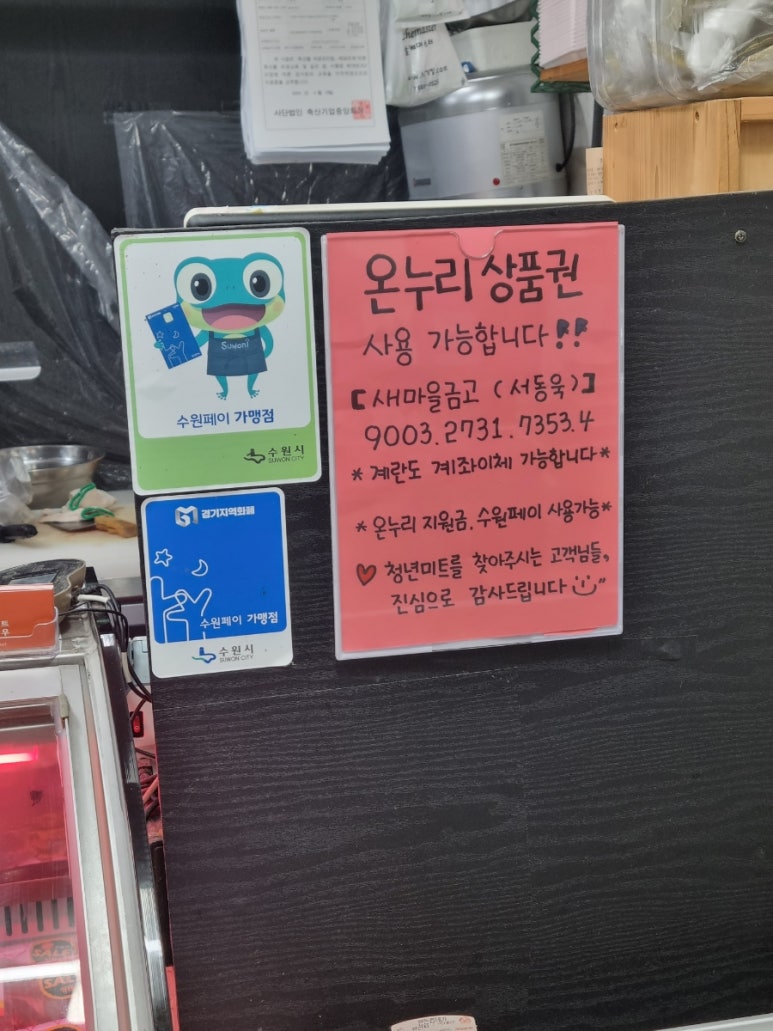 사단법인 축산기업중앙회
Suwon
수원페이 가맹점
수원시
SUWON CITY
경기지역화폐
수원페이 가맹점
수원시
SUWON CITY
온누리 상품권
사용 가능합니다!!
[새마을금고 (서동욱)]
9003.2731.7353.4
*계란도 계좌이체 가능합니다*
*온누리 지원금, 수원페이 사용가능*
청년미트를 찾아주시는 고객님들,
진심으로 감사드립니다